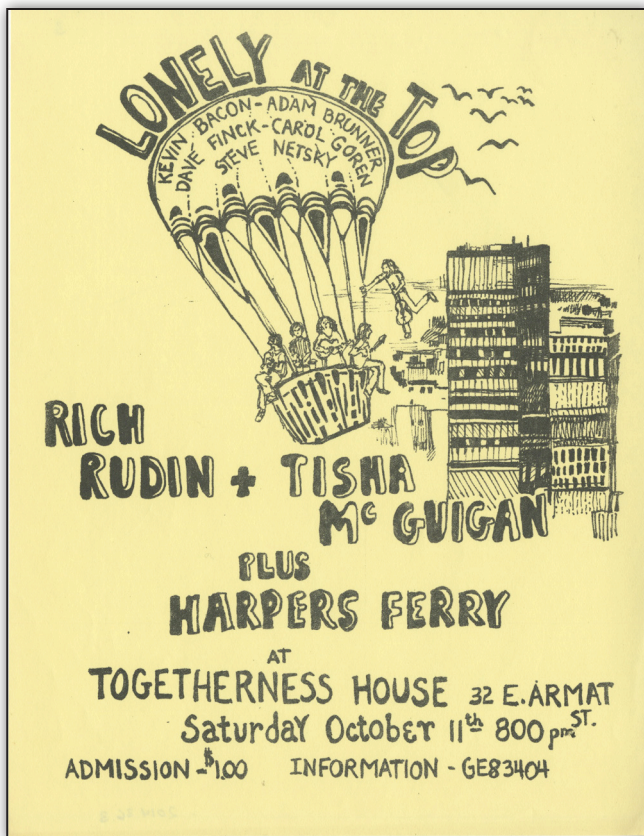 LONELY AT THE TOP
KEVIN BACON - ADAM BRUNNER
DAVE FINCK - CAROL GOREN
STEVE NETSKY
RICH
RUDIN + TISHA
Mc GUIGAN
PLUS
HARPERS FERRY
AT
TOGETHERNESS HOUSE 32 E. ARMAT ST.
Saturday October 11th 800 pm
ADMISSION - $1.00 INFORMATION - GE83404